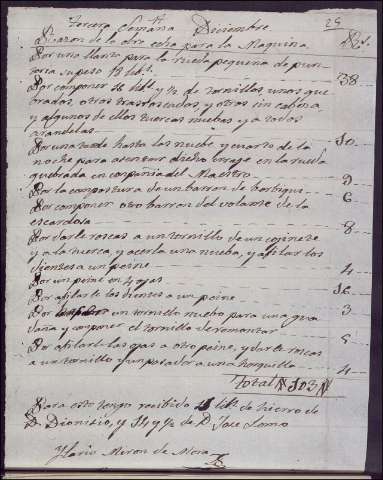 25
Tercera Semana Diciembre
Razon de la obra echa para la Maquina Rs.
Por una llanta para la rueda pequeña de pun-
teria su peso 18 lib.s 38
Por componer 16 lib.s y ½ de tornillos, unos que-
brados, otros trastocados y otros sin cabeza
y algunos de ellos tuercas nuebas y a todos
arandelas 50
Por una tarde hasta las nuebe y cuarto de la
noche para asentar dicho errage en la rueda
quebrada en conpania del Maestro 9
Por la conpostura de un barron de berbiqui 6
Por componer otro barron del volante de la
escardosa 8
Por darle roscas a un tornillo de un cojinete
y a la tuerca y acerla una nueba, y afilar los
dientes a un peine 4
Por un peine en 4 ojos 16
Por afilarle los dientes a un peine 3
Por un tornillo nuebo para una gua
daña y conponer el tornillo de remontar 5
Por afilarle las puas a otro peine, y darle roscas
a un tornillo y un pasador a una horquilla 4
Total 103
Para esto tengo recibido lib.s de hierro de
D. Dionisio, y 14 y ½ de D. Jose Lomo
Ylario Miron de Mora